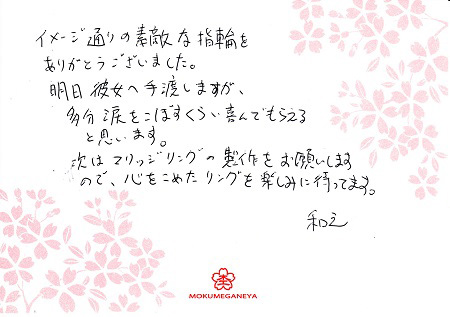 イメージ通りの素敵な指輪を
ありがとうございました。
明日彼女へ手渡しますが、
多分涙をこぼすくらい喜んでもらえる
と思います。
次はマリッジリングの製作をお願いします
ので、心をこめたリングを楽しみに待ってます。
和之
MOKUMEGANEYA